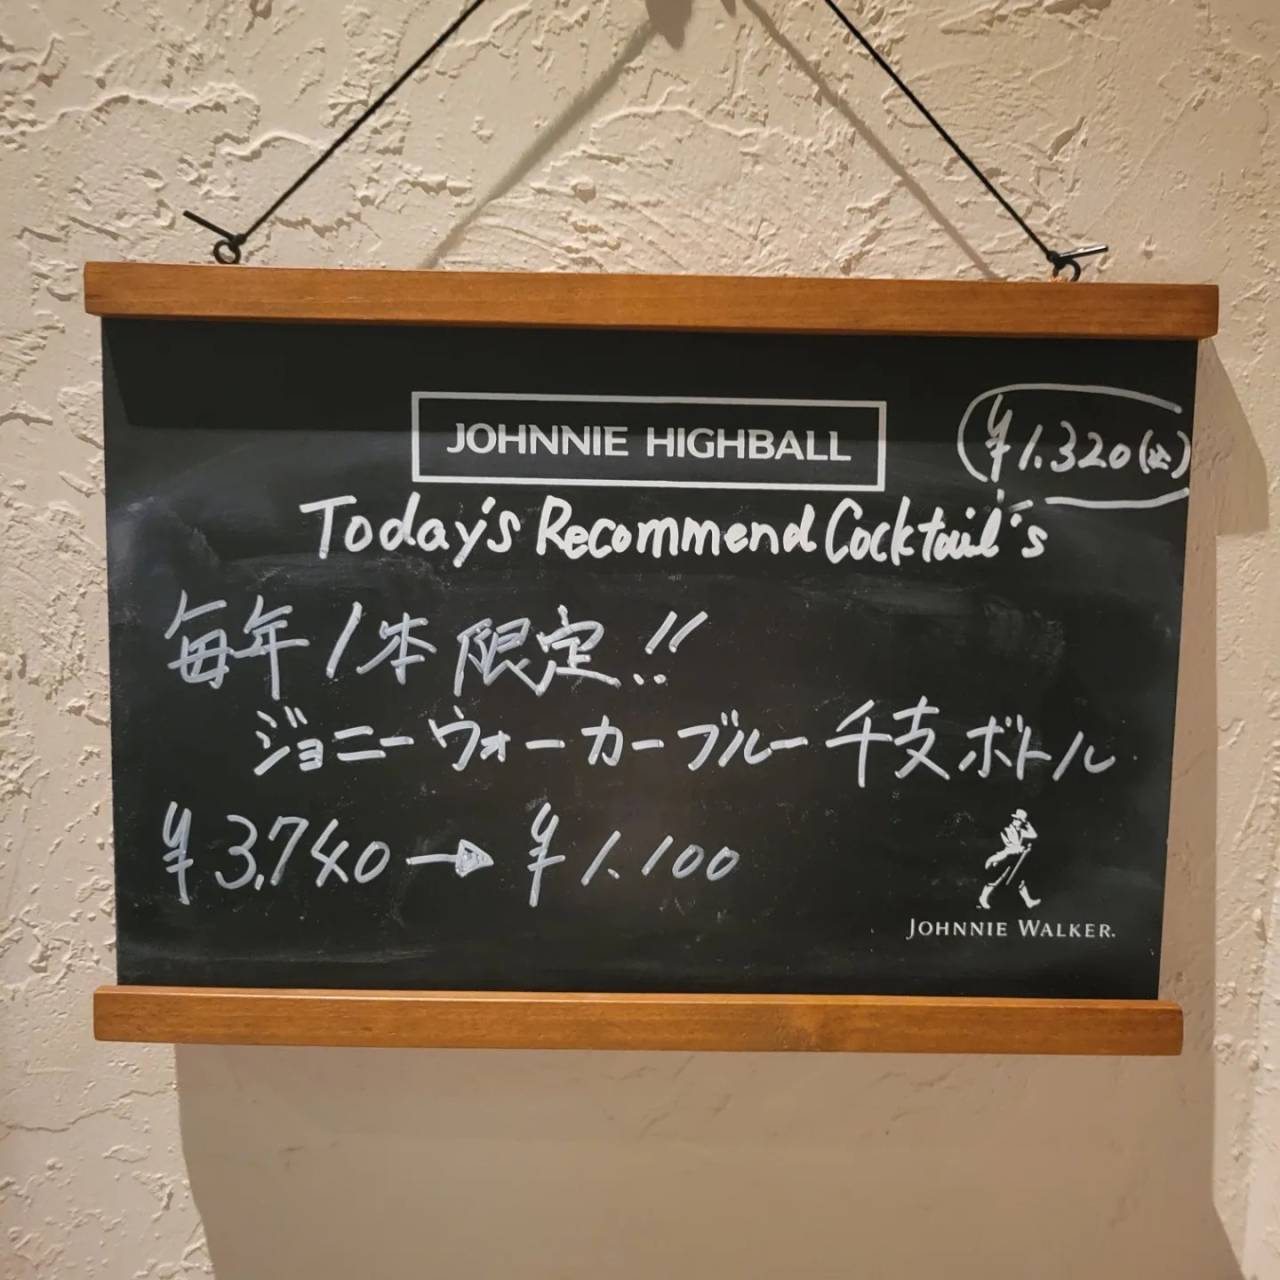 JOHNNIE HIGHBALL
¥1.320(込)
Today's Recommend Cocktail's
毎年1本限定!!
ジョニーウォーカーブルー干支ボトル
¥3.740→¥1.100
JOHNNIE WALKER.